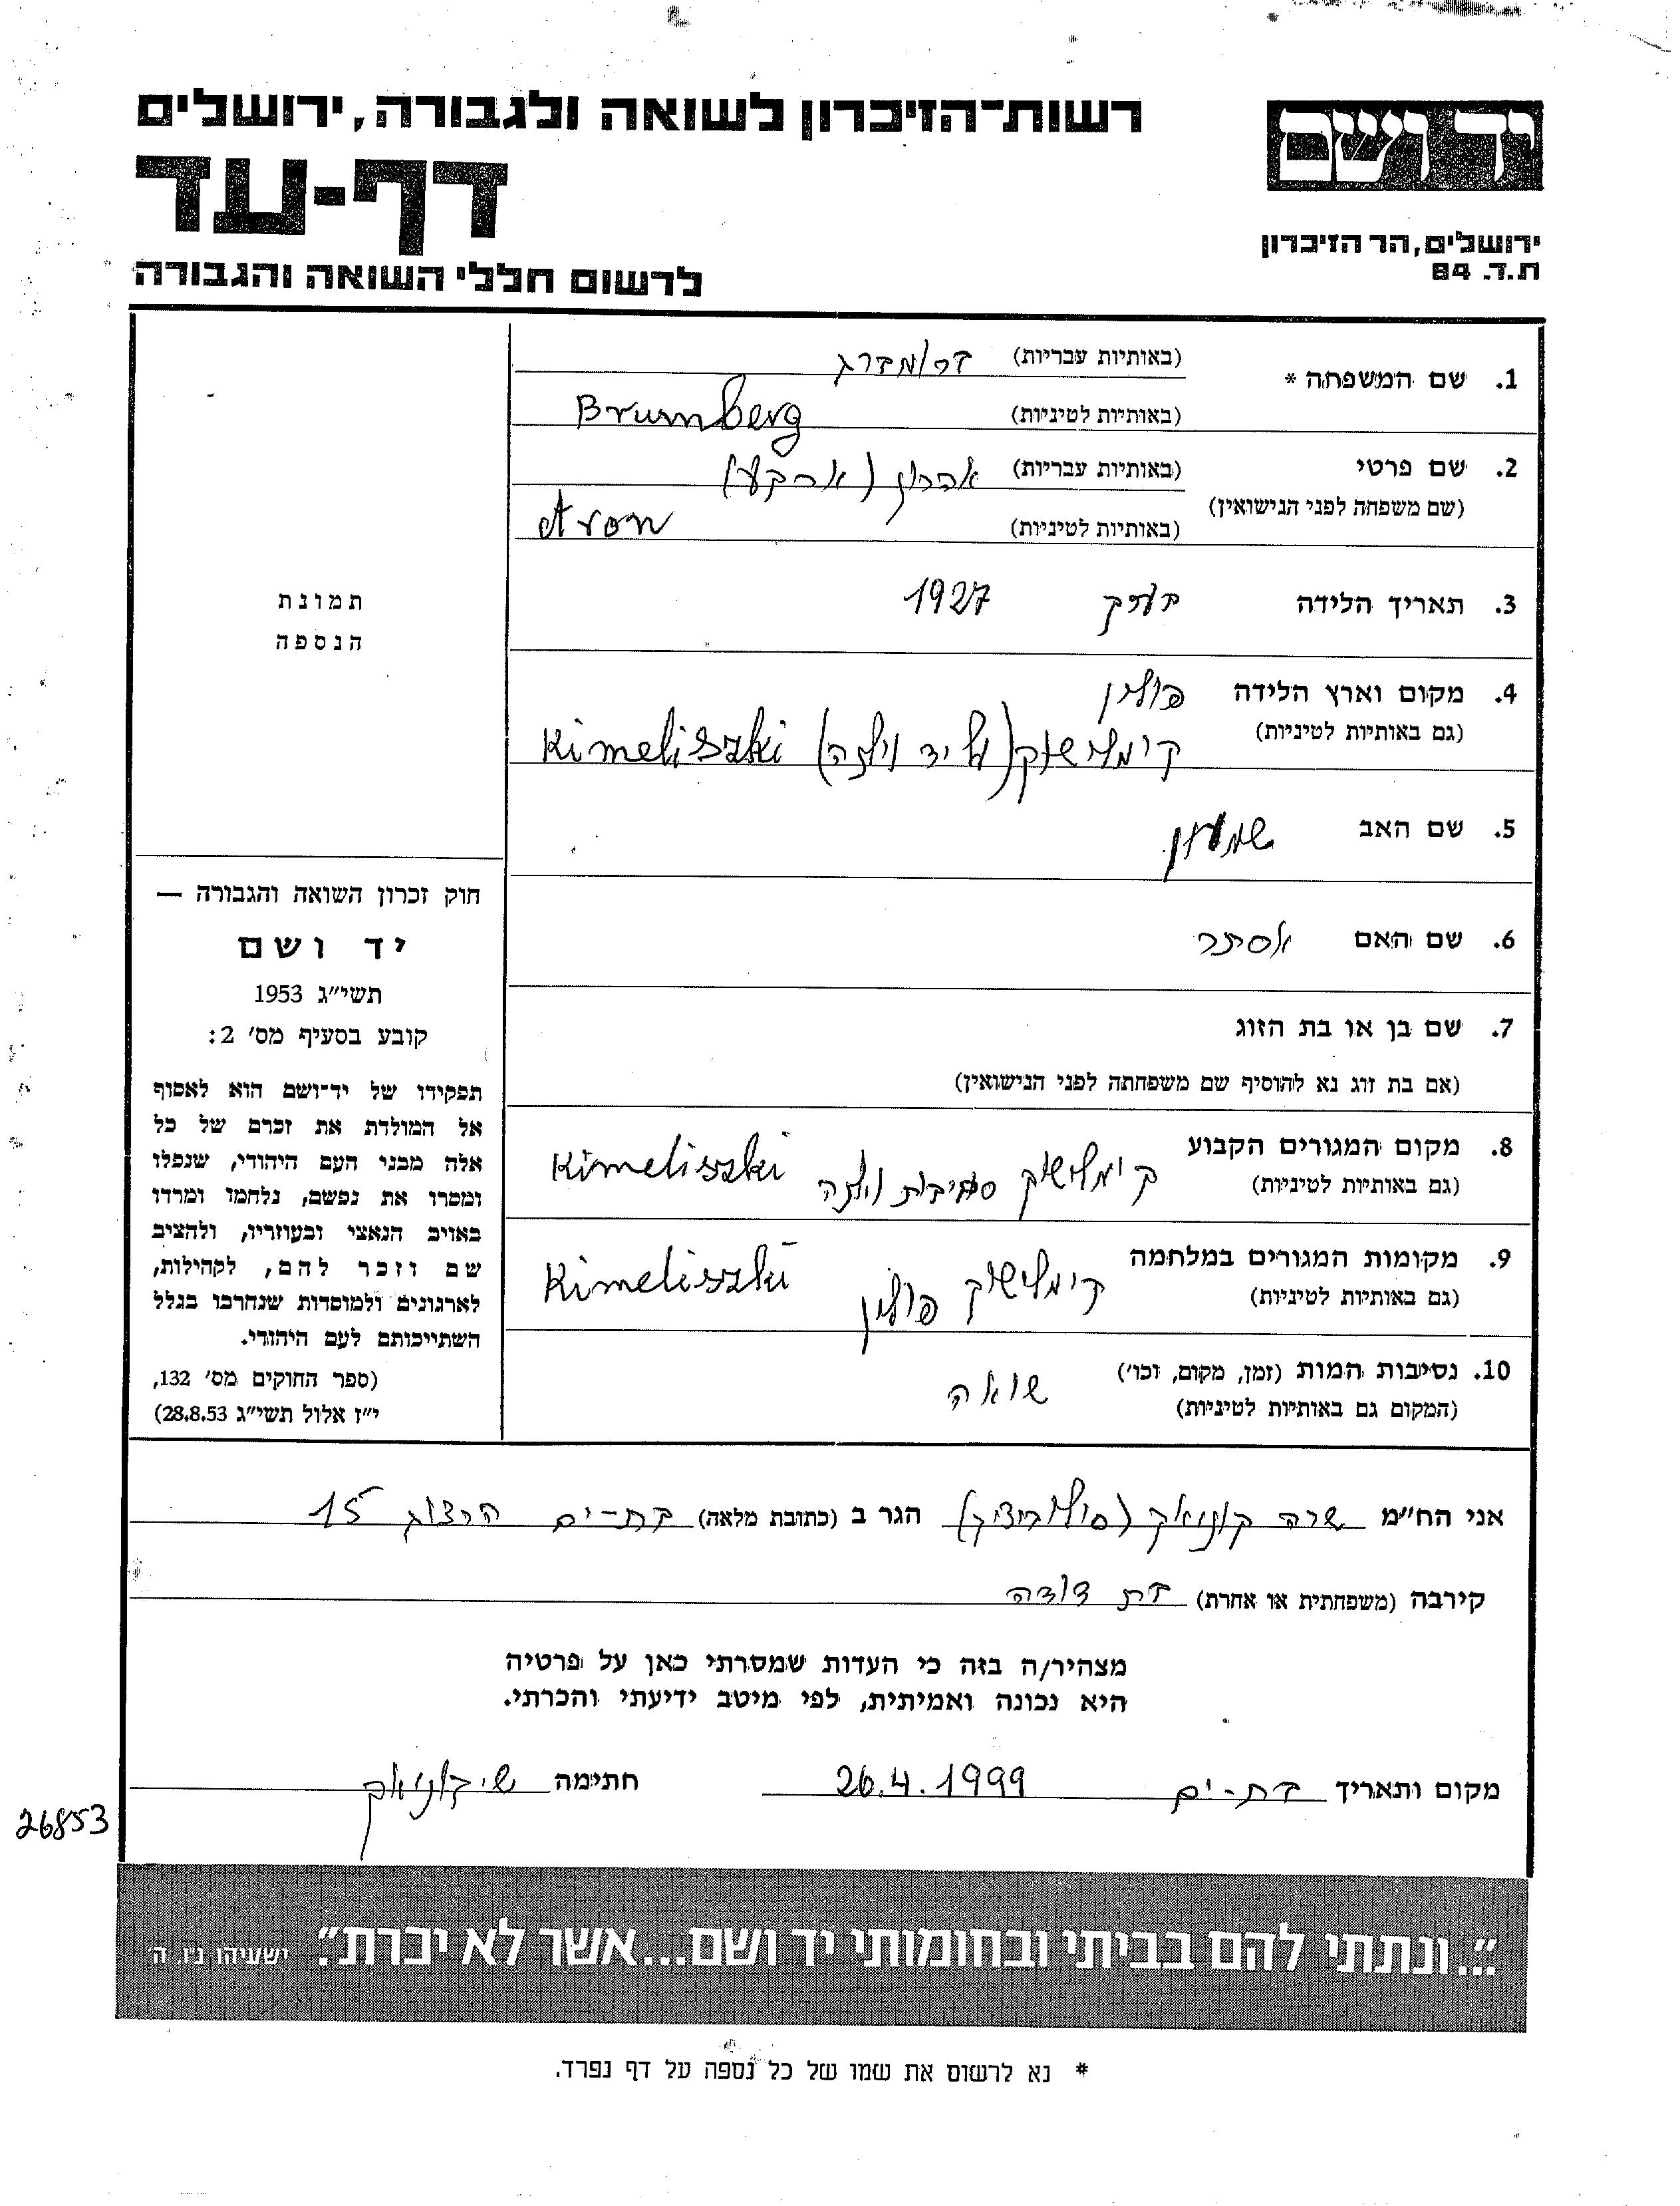 יד ושם
ירושלים, הר הזיכרון
ת.ד. 84
רשות־הזיכרון לשואה ולגבורה, ירושלים
דף-עד
לרשום חללי השואה והגבורה
1. שם המשפחה * (באותיות עבריות) ברומברג
(באותיות לטיניות) Brumberg
2. שם פרטי (באותיות עבריות) אהרון (ארקע)
(שם משפחה לפני הנישואין) (באותיות לטיניות) Aron
3. תאריך הלידה בערך 1927
4. מקום וארץ הלידה פולין
(גם באותיות לטיניות) קימלישוק (על יד וילנה) Kimeliszki
5. שם האב שמעון
6. שם האם אסתר
7. שם בן או בת הזוג
(אם בת זוג נא להוסיף שם משפחתה לפני הנישואין)
8. מקום המגורים הקבוע קימלישוק סביבות וילנה Kimeliszki
(גם באותיות לטיניות)
9. מקומות המגורים במלחמה קימלישוק פולין Kimeliszki
(גם באותיות לטיניות)
10. נסיבות המות (זמן, מקום, וכו') שואה
(המקום גם באותיות לטיניות)
תמונת
הנספה
חוק זכרון השואה והגבורה —
יד ושם
תשי״ג 1953
קובע בסעיף מס' 2:
תפקידו של יד־ושם הוא לאסוף
אל המולדת את זכרם של כל
אלה מבני העם היהודי, שנפלו
ומסרו את נפשם, נלחמו ומרדו
באויב הנאצי ובעוזריו, ולהציב
שם וזכר להם, לקהילות,
לארגונים ולמוסדות שנחרבו בגלל
השתייכותם לעם היהודי.
(ספר החוקים מס' 132,
י״ז אלול תשי״ג 28.8.53)
אני הח״מ שרה קונואק הגר ב (כתובת מלאה) בת-ים הרצוג 15
קירבה (משפחתית או אחרת) בת דודה
מצהיר/ה בזה כי העדות שמסרתי כאן על פרטיה
היא נכונה ואמיתית, לפי מיטב ידיעתי והכרתי.
מקום ותאריך בת-ים 26.4.1999 חתימה
26853
״...ונתתי להם בביתי ובחומותי יד ושם...אשר לא יכרת״. ישעיהו נ״ו, ה'
* נא לרשום את שמו של כל נספה על דף נפרד.